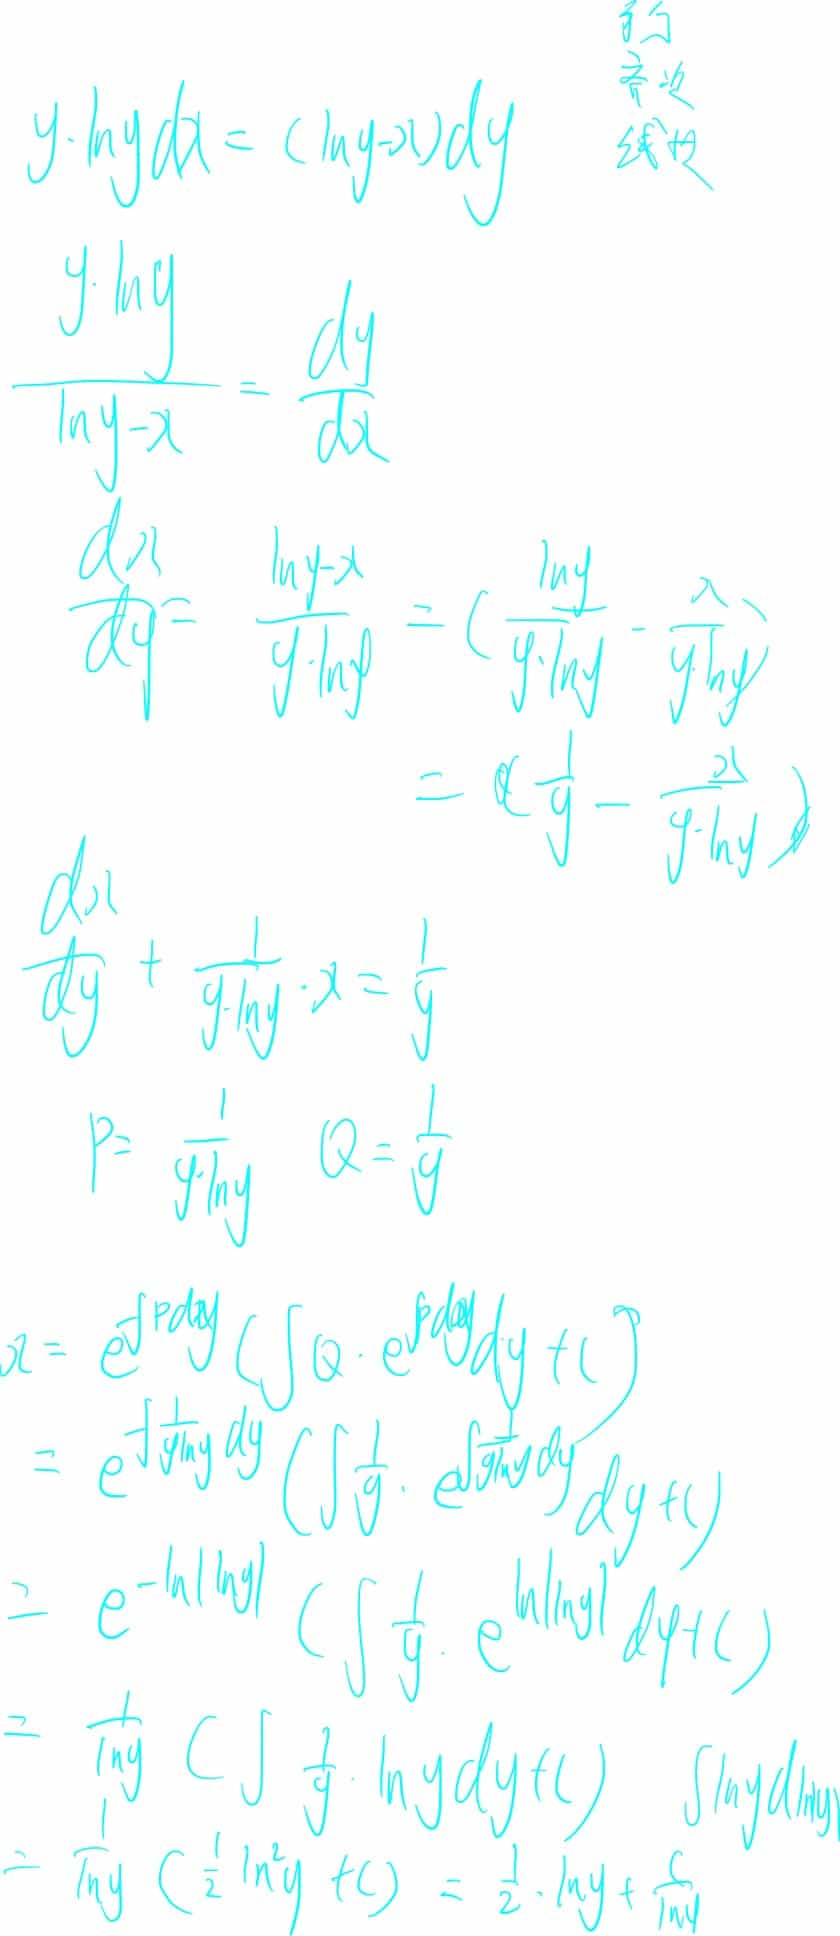 可分
齐次
线性
y·lny dx = (lny-x)dy
y·lny / lny-x = dy/dx
dx/dy = lny-x / y·lny = ( lny / y·lny - x / y·lny )
= ( 1/y - x / y·lny )
dx/dy + 1 / y·lny · x = 1/y
P = 1 / y·lny Q = 1/y
x = e^-∫Pdy (∫Q·e^∫Pdy dy + C)
= e^-∫1/ylny dy (∫1/y · e^∫1/ylny dy dy + C)
= e^-ln|lny| (∫1/y · e^ln|lny| dy + C)
= 1/lny (∫1/y · lny dy + C) ∫lny d(lny)
= 1/lny (1/2 ln²y + C) = 1/2 · lny + C/lny